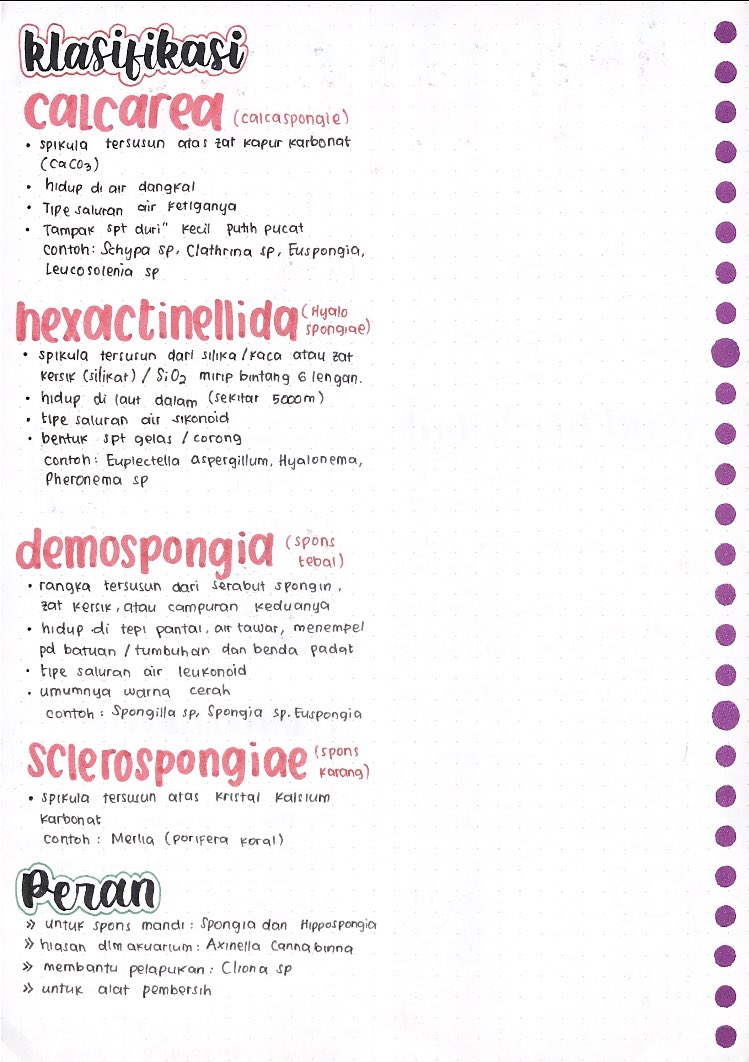 klasifikasi
calcarea (calcaspongie)
• spikula tersusun atas zat kapur karbonat
(CaCO3)
• hidup di air dangkal
• Tipe saluran air ketiganya
• Tampak spt duri" kecil putih pucat
contoh: Schypa sp, Clathrina sp, Euspongia,
Leucosolenia sp
hexactinellida (Hyalo
spongiae)
• spikula tersusun dari silika/kaca atau zat
kersik (silikat) / SiO2 mirip bintang 6 lengan.
• hidup di laut dalam (sekitar 5000m)
• tipe saluran air sikonoid
• bentuk spt gelas / corong
contoh: Euplectella aspergillum, Hyalonema,
Pheronema sp
demospongia (spons
tebal)
• rangka tersusun dari serabut spongin,
zat kersik, atau campuran keduanya
• hidup di tepi pantai, air tawar, menempel
pd batuan / tumbuhan dan benda padat
• tipe saluran air leukonoid
• umumnya warna cerah
contoh : Spongilla sp, Spongia sp. Euspongia
sclerospongiae (spons
karang)
• spikula tersusun atas kristal kalsium
karbonat
contoh : Merlia (porifera koral)
Peran
» untuk spons mandi : Spongia dan Hippospongia
» hiasan dlm akuarium : Axinella Cannabinna
» membantu pelapukan : Cliona sp
» untuk alat pembersih